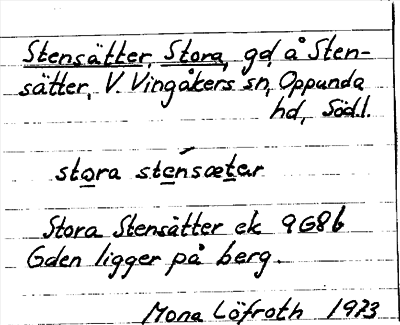 Stensätter, Stora, gd, å Sten-
sätter, V. Vingåkers sn, Oppunda
hd, Södl.
stora sténsætar
Stora Stensätter ek 9G8b
Gden ligger på berg.
Mona Löfroth 1973